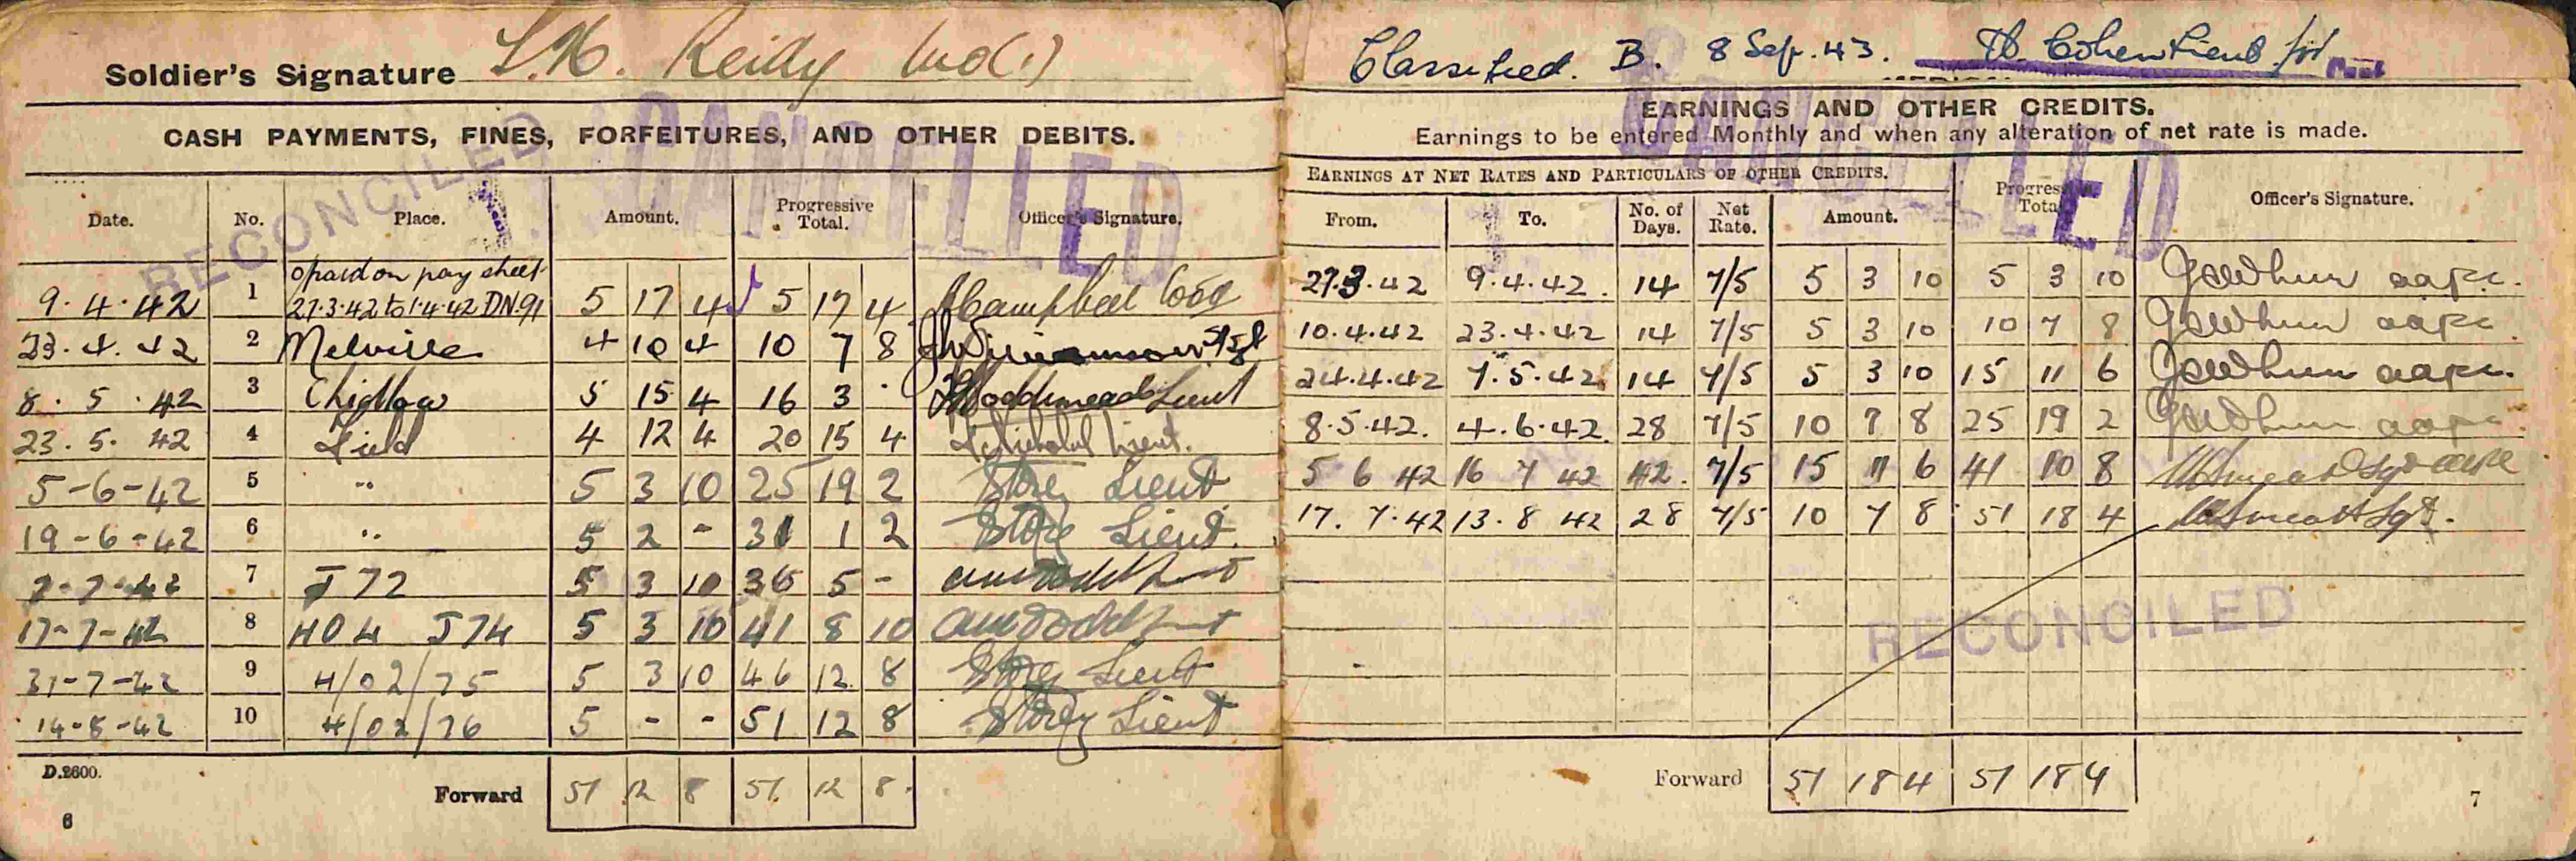 Soldier's Signature L.H. Reidy WO(1)
CASH PAYMENTS, FINES, FORFEITURES, AND OTHER DEBITS.
RECONCILED
CANCELLED
Date. No. Place. Amount. Progressive Total. Officer's Signature.
opaid on pay sheet
9.4.42 1 27.3.42 to 1.4.42 DN.91 5 17 4 5 17 4 Campbell
23.4.42 2 Melville 4 10 4 10 7 8 Williamson S/Sgt
8.5.42 3 Chidlow 5 15 4 16 3 - Lieut
23.5.42 4 Field 4 12 4 20 15 4 Lieut.
5-6-42 5 " 5 3 10 25 19 2 Storey Lieut
19-6-42 6 " 5 2 - 31 1 2 Storey Lieut.
7 J 72 5 3 10 36 5 -
17-7-42 8 404 J74 5 3 10 41 8 10
31-7-42 9 4/02/75 5 3 10 46 12 8 Storey Lieut
14-8-42 10 4/02/76 5 - - 51 12 8 Storey Lieut
D.2600.
Forward 51 12 8 51 12 8
6
Classified. B. 8 Sep. 43. Cohen Lieut for
EARNINGS AND OTHER CREDITS.
Earnings to be entered Monthly and when any alteration of net rate is made.
CANCELLED
EARNINGS AT NET RATES AND PARTICULARS OF OTHER CREDITS. Progressive Total Officer's Signature.
From. To. No. of Days. Net Rate. Amount.
27.3.42 9.4.42. 14 7/5 5 3 10 5 3 10 aapc.
10.4.42 23.4.42 14 7/5 5 3 10 10 7 8 aapc
24.4.42 7.5.42. 14 7/5 5 3 10 15 11 6 aapc.
8.5.42. 4.6.42. 28 7/5 10 7 8 25 19 2 aapc.
5 6 42 16 7 42 42. 7/5 15 11 6 41 10 8 Sgt aapc
17.7.42 13.8 42 28 7/5 10 7 8 51 18 4 Sgt.
RECONCILED
Forward 51 18 4 51 18 4
7